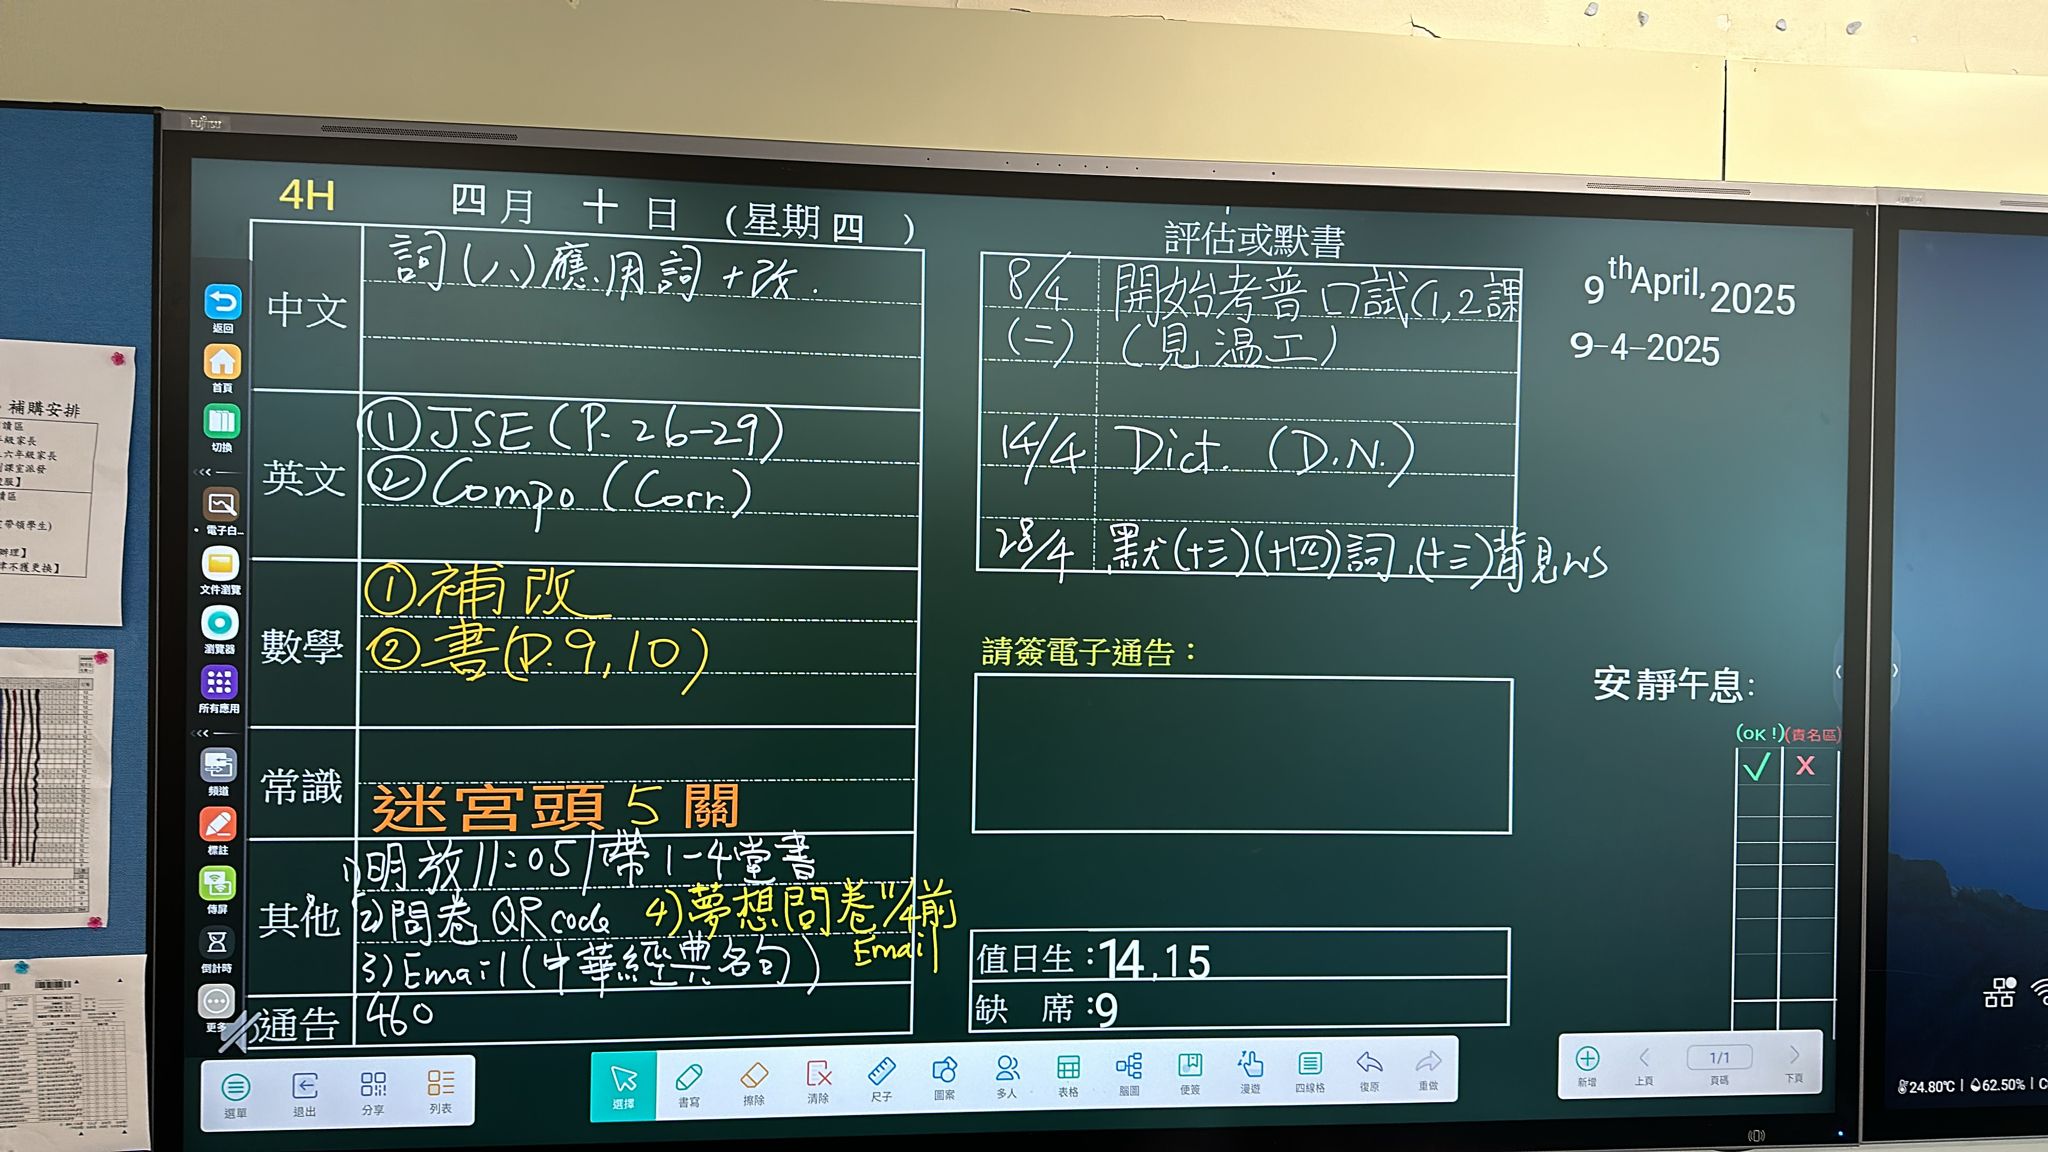 FUJITSU
4H
四月 十 日 (星期四 )
中文
詞(八)應用詞+改.
英文
①JSE(P. 26-29)
②Compo (Corr.)
數學
①補改
②書(P.9,10)
常識
迷宮頭5關
其他
1)明放11:05/帶1-4堂書
2)問卷 QR code 4)夢想問卷11/4前
Email
3)Email(中華經典名句)
通告
460
評估或默書
8/4 開始考普口試(1,2課
(二) (見溫工)
14/4 Dict. (D.N.)
28/4 默(十三)(十四)詞,(十三)背見WS
請簽電子通告：
值日生：14,15
缺 席：9
9th April, 2025
9-4-2025
安靜午息:
(OK!)(責名區)
✓ X
返回
首頁
切換
電子白...
文件瀏覽
瀏覽器
所有應用
頻道
標註
傳屏
倒計時
更多
選單 退出 分享 列表
選擇 書寫 擦除 清除 尺子 圖案 多人 表格 腦圖 便簽 漫遊 四線格 復原 重做
新增 上頁 1/1 頁碼 下頁
24.80℃ | 62.50% | C
補購安排
級家長
六年級家長
課室派發
帶領學生)
律不獲更換】